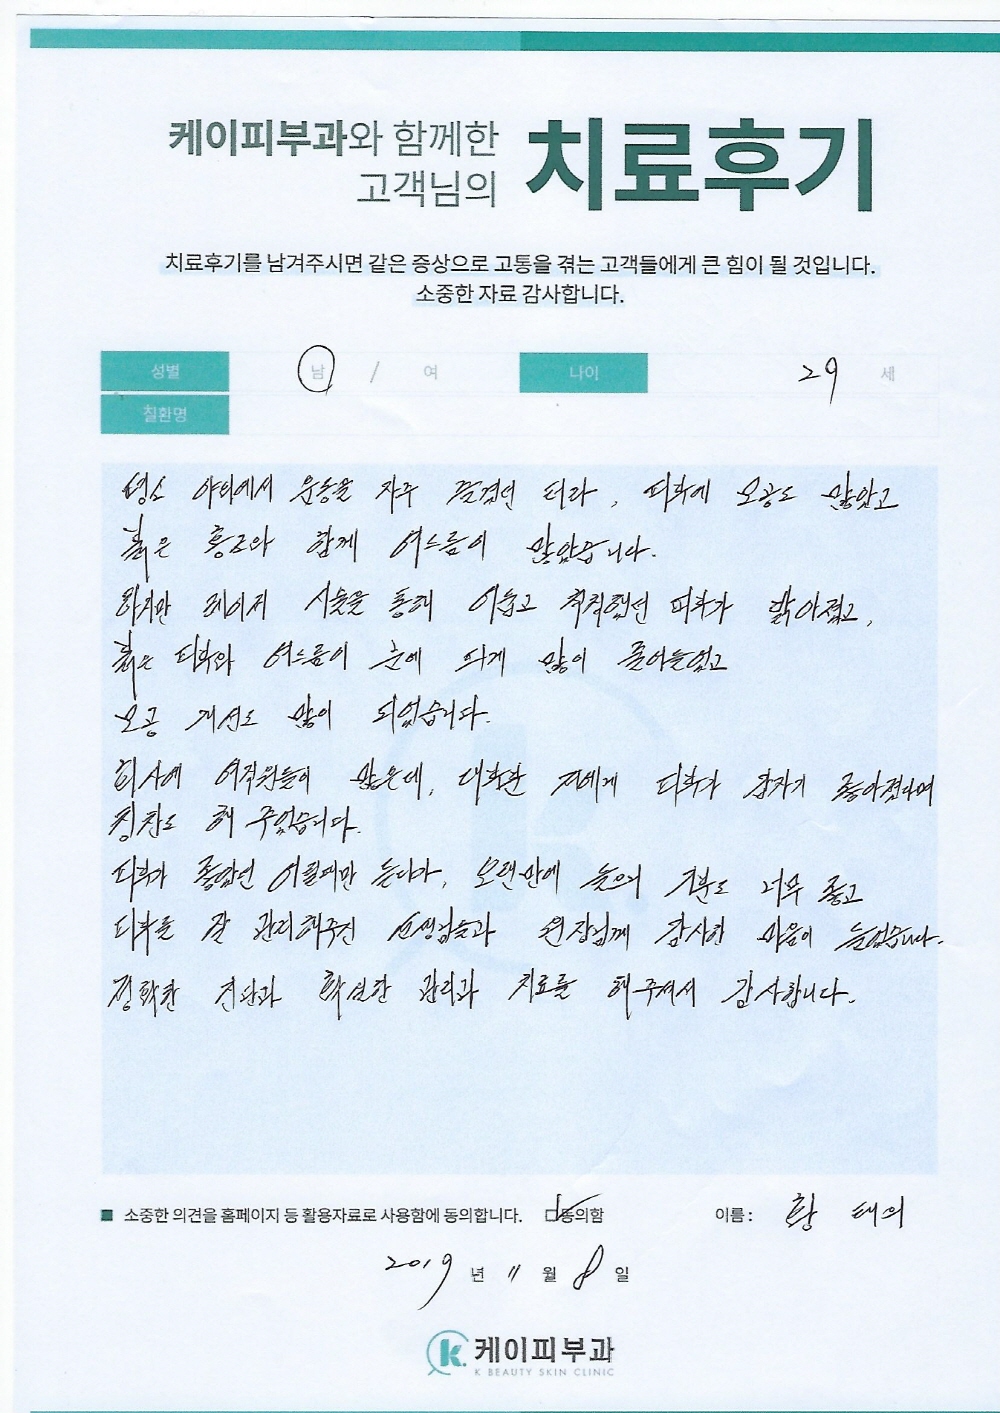 케이피부과와 함께한
고객님의
치료후기
치료후기를 남겨주시면 같은 증상으로 고통을 겪는 고객들에게 큰 힘이 될 것입니다.
소중한 자료 감사합니다.
성별 남 / 여 나이 29 세
칠환명
평소 야외에서 운동을 자주 즐겼던 터라, 피부에 모공도 많았고
붉은 홍조와 함께 여드름이 많았습니다.
하지만 레이저 시술을 통해 어둡고 칙칙했던 피부가 맑아졌고,
붉은 피부와 여드름이 눈에 띄게 많이 줄어들었고
모공 개선도 많이 되었습니다.
회사에 여직원들이 많은데, 대화한 저에게 피부가 갑자기 좋아졌다며
칭찬도 해 주었습니다.
피부가 좋았던 어릴때만 듣다가, 오랜만에 들으니 기분도 너무 좋고
피부를 잘 관리해주신 선생님들과 원장님께 감사한 마음이 들었습니다.
정확한 진단과 확실한 관리과 치료를 해주셔서 감사합니다.
소중한 의견을 홈페이지 등 활용자료로 사용함에 동의합니다. 동의함 이름: 황
2019 년 11 월 8 일
k 케이피부과
K BEAUTY SKIN CLINIC